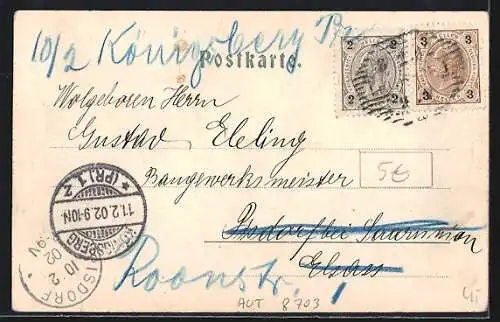 10/2 Königsberg Pr.
Postkarte.
Wolgeboren Herrn
Gustav Ebeling
Baugewerksmeister
bei Saarunion
Elsass
Roonstr. 1
2 2
2 2
3 3
3 3
KÖNIGSBERG
* (PR.) 1 Z
11.2.02.9-10N
ISDORF
10 2
02
9V
5€
AUT 8703